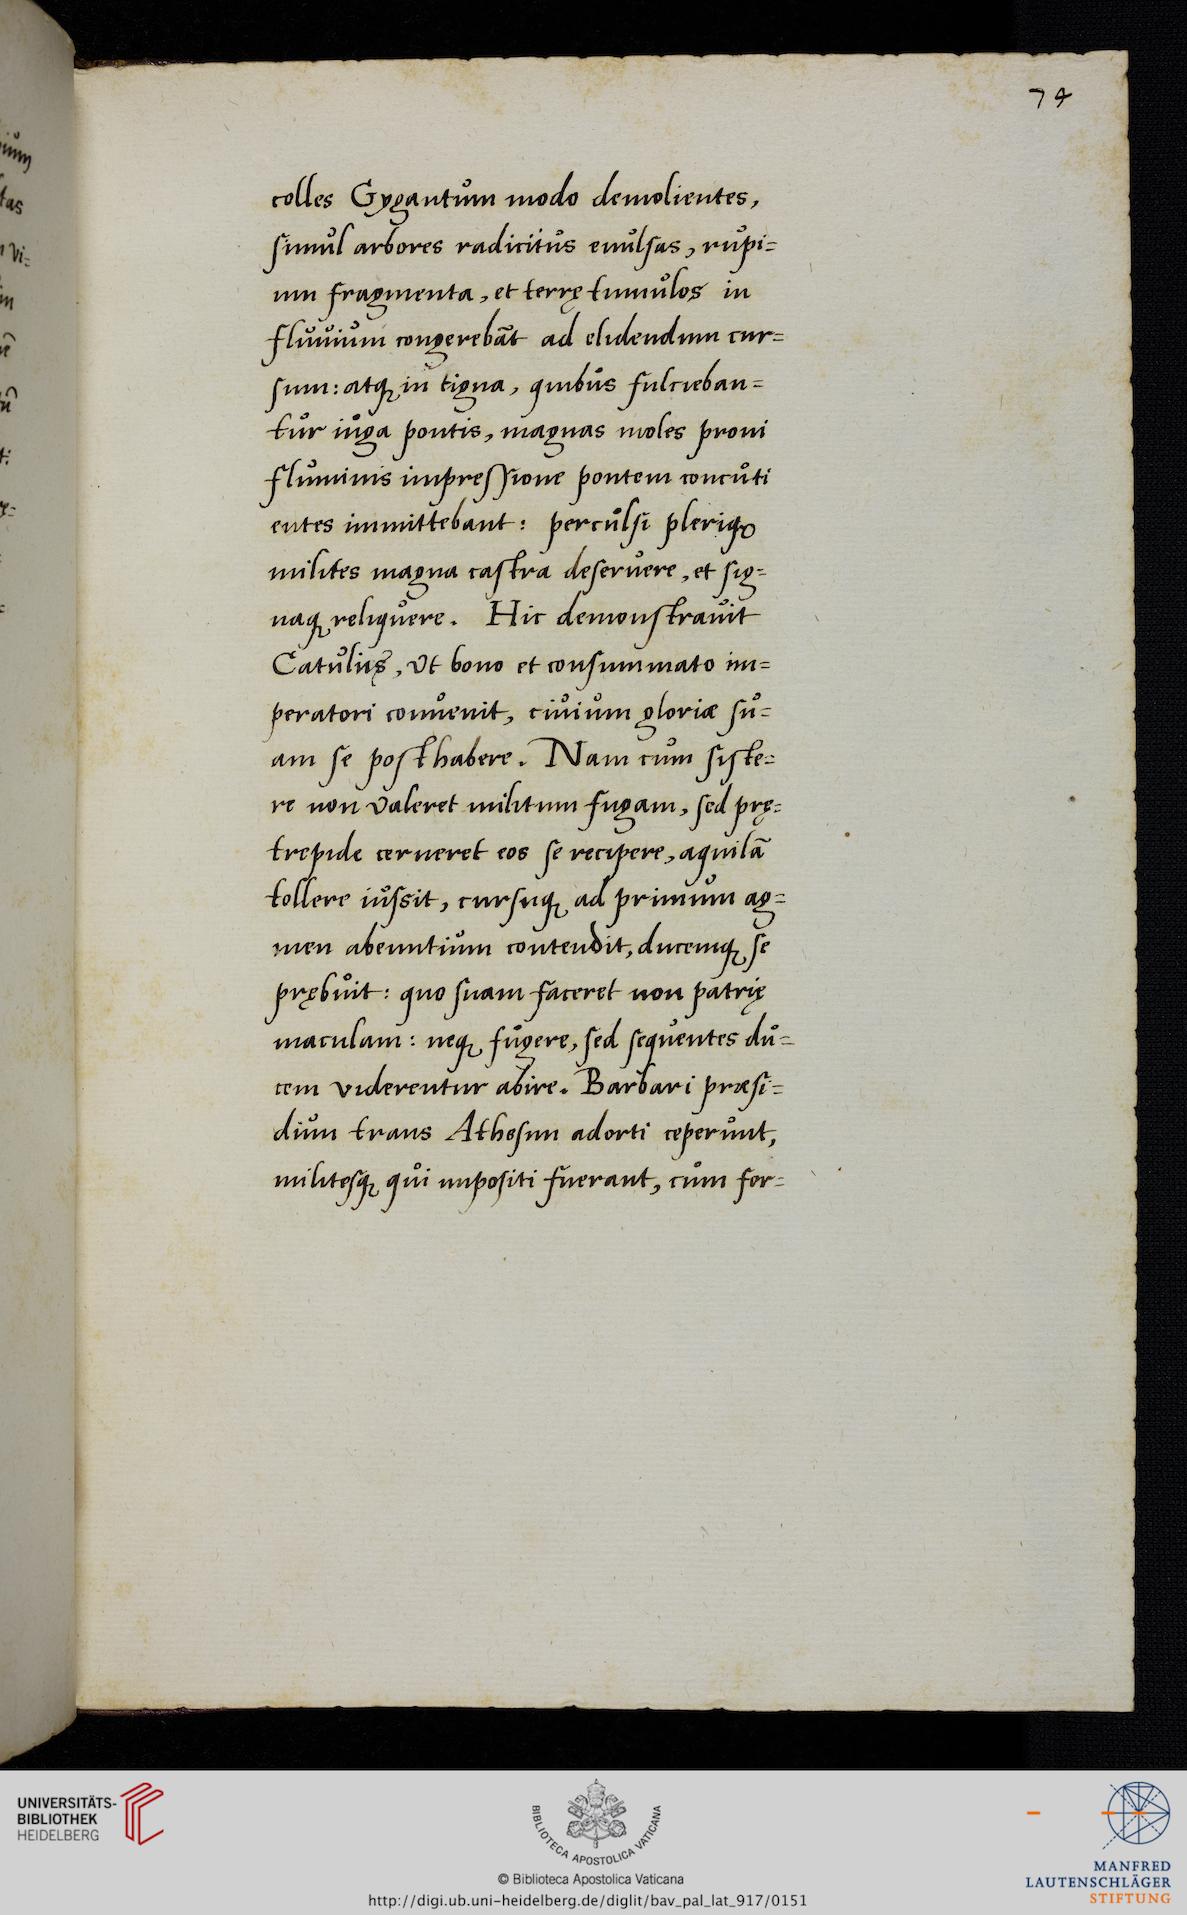 74
colles Gygantum modo demolientes,
simul arbores radicitus euulsas, rupi=
um fragmenta, et terrę tumulos in
fluuium congerebãt ad elidendum cur=
sum: atq; in tigna, quibus fulcieban=
tur iuga pontis, magnas moles proni
fluminis impressione pontem concuti
entes immittebant: perculsi pleriq;
milites magna castra deseruere, et sig=
naq; reliquere. Hic demonstrauit
Catulus, vt bono et consummato im=
peratori conuenit, ciuium gloriæ su=
am se posthabere. Nam cum siste=
re non valeret militum fugam, sed prę=
trepide cerneret eos se recipere, aquilã
tollere iussit, cursuq; ad primum ag=
men abeuntium contendit, ducemq; se
prębuit: quo suam faceret non patrię
maculam: neq; fugere, sed sequentes du=
cem viderentur abire. Barbari præsi=
dium trans Athesim adorti ceperunt,
militesq; qui impositi fuerant, cum for=
UNIVERSITÄTS-
BIBLIOTHEK
HEIDELBERG
BIBLIOTECA APOSTOLICA VATICANA
© Biblioteca Apostolica Vaticana
http://digi.ub.uni-heidelberg.de/diglit/bav_pal_lat_917/0151
MANFRED
LAUTENSCHLÄGER
STIFTUNG